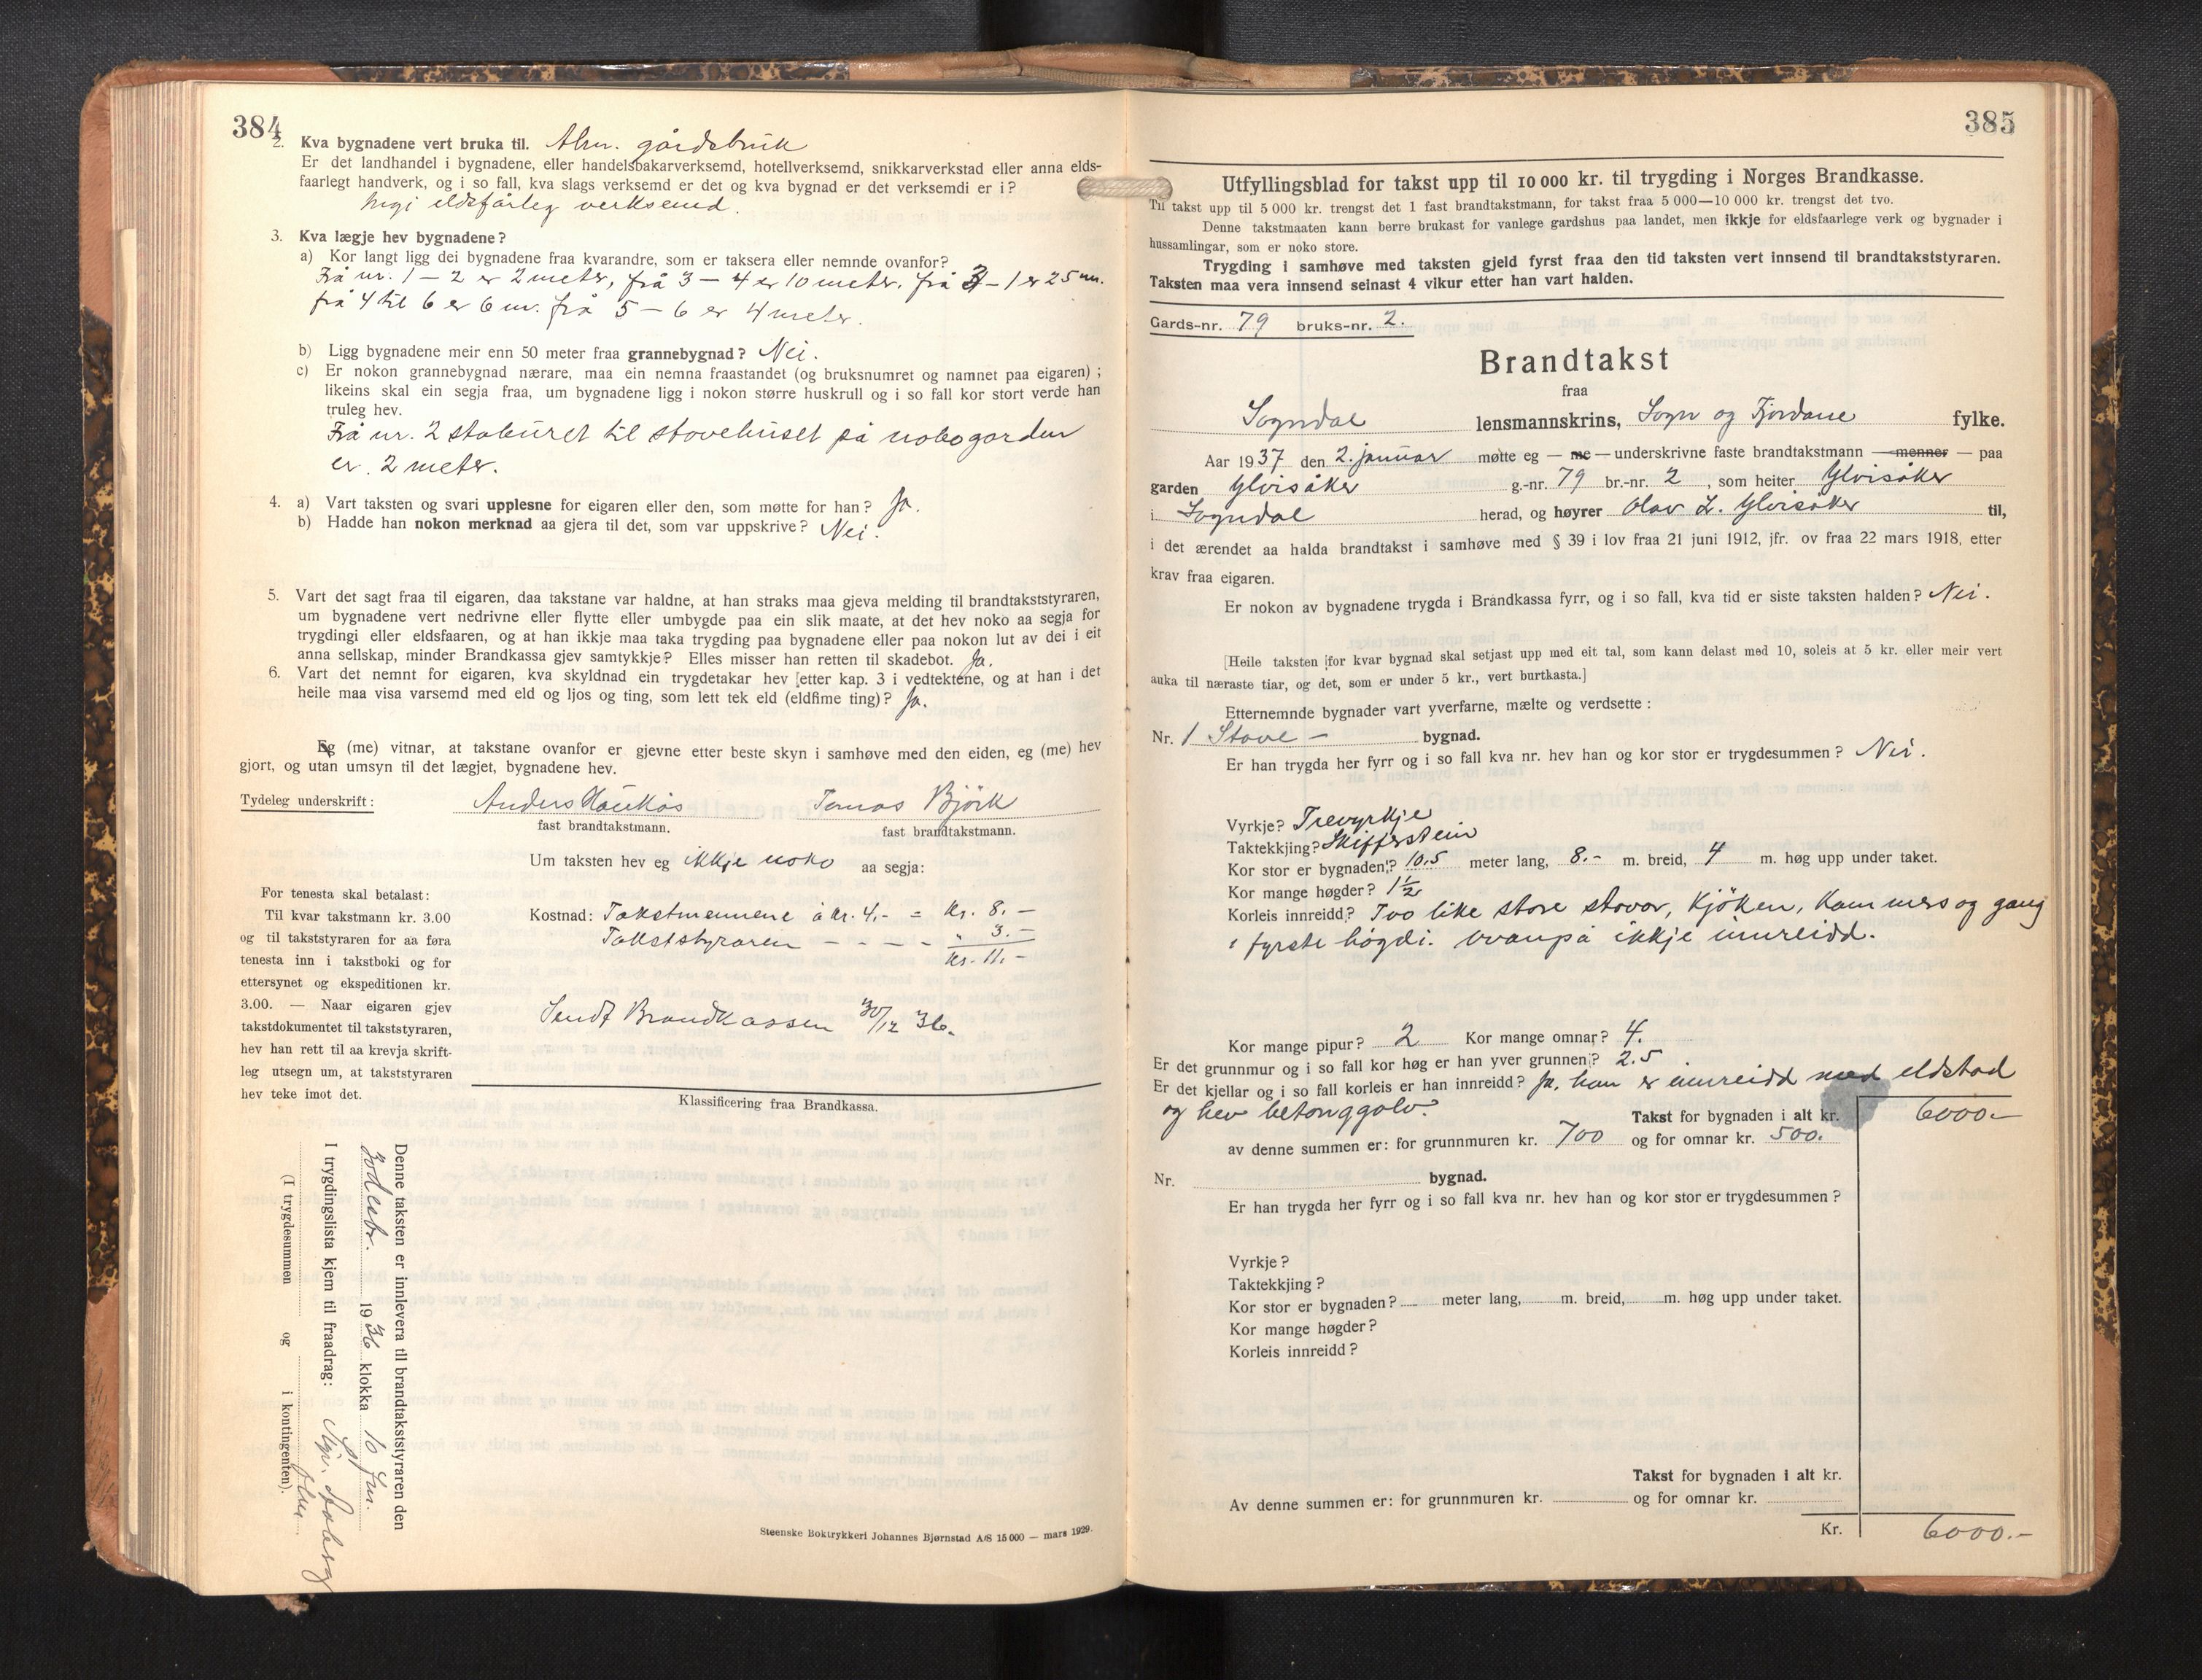 384
2. Kva bygnadene vert bruka til. Alm. gårdsbruk
Er det landhandel i bygnadene, eller handelsbakarverksemd, hotellverksemd, snikkarverkstad eller anna elds-
faarlegt handverk, og i so fall, kva slags verksemd er det og kva bygnad er det verksemdi er i?
Ingi eldsfårleg verksemd.
3. Kva lægje hev bygnadene?
a) Kor langt ligg dei bygnadene fraa kvarandre, som er taksera eller nemnde ovanfor?
Frå nr. 1 – 2 er 2 meter, frå 3 – 4 er 10 meter. frå 3 – 1 er 25 m.
frå 4 til 6 er 6 m. frå 5 – 6 er 4 meter.
b) Ligg bygnadene meir enn 50 meter fraa grannebygnad? Nei.
c) Er nokon grannebygnad nærare, maa ein nemna fraastandet (og bruksnumret og namnet paa eigaren);
likeins skal ein segja fraa, um bygnadene ligg i nokon større huskrull og i so fall kor stort verde han
truleg hev.
Frå nr. 2 staburet til stovehuset på nabogarden
er 2 meter.
4. a) Vart taksten og svari upplesne for eigaren eller den, som møtte for han? Ja.
b) Hadde han nokon merknad aa gjera til det, som var uppskrive? Nei.
5. Vart det sagt fraa til eigaren, daa takstane var haldne, at han straks maa gjeva melding til brandtakststyraren,
um bygnadene vert nedrivne eller flytte eller umbygde paa ein slik maate, at det hev noko aa segja for
trygdingi eller eldsfaaren, og at han ikkje maa taka trygding paa bygnadene eller paa nokon lut av dei i eit
anna sellskap, minder Brandkassa gjev samtykkje? Elles misser han retten til skadebot. Ja.
6. Vart det nemnt for eigaren, kva skyldnad ein trygdetakar hev [etter kap. 3 i vedtektene, og at han i det
heile maa visa varsemd med eld og ljos og ting, som lett tek eld (eldfime ting)? Ja.
Eg (me) vitnar, at takstane ovanfor er gjevne etter beste skyn i samhøve med den eiden, eg (me) hev
gjort, og utan umsyn til det lægjet, bygnadene hev.
Tydeleg underskrift: Anders Haukås Tomas Björk
fast brandtakstmann. fast brandtakstmann.
Um taksten hev eg ikkje noko aa segja:
For tenesta skal betalast:
Til kvar takstmann kr. 3.00
og til takststyraren for aa føra
tenesta inn i takstboki og for
ettersynet og ekspeditionen kr.
3.00. — Naar eigaren gjev
takstdokumentet til takststyraren,
hev han rett til aa krevja skrift-
leg utsegn um, at takststyraren
hev teke imot det.
Kostnad: Takstmennene à kr. 4.- = kr. 8.–
Takststyraren – – – – " 3.–
kr. 11.–
Sendt Brandkassen 30/12 36.
Klassificering fraa Brandkassa.
Denne taksten er innlevera til brandtakststyraren den
30 desbr. 1936 klokka 10 fm.
I trygdingslista kjem til fraadrag:
(I trygdesummen og i kontingenten).
Steenske Boktrykkeri Johannes Bjørnstad A/S 15 000 — mars 1929.
385
Utfyllingsblad for takst upp til 10 000 kr. til trygding i Norges Brandkasse.
Til takst upp til 5 000 kr. trengst det 1 fast brandtakstmann, for takst fraa 5 000—10 000 kr. trengst det tvo.
Denne takstmaaten kann berre brukast for vanlege gardshus paa landet, men ikkje for eldsfaarlege verk og bygnader i
hussamlingar, som er noko store.
Trygding i samhøve med taksten gjeld fyrst fraa den tid taksten vert innsend til brandtakststyraren.
Taksten maa vera innsend seinast 4 vikur etter han vart halden.
Gards-nr. 79 bruks-nr. 2.
Brandtakst
fraa
Sogndal lensmannskrins, Sogn og Fjordane fylke.
Aar 1937 den 2. januar møtte eg — me — underskrivne faste brandtakstmann — menner — paa
garden Ylvisåker g.-nr. 79 br.-nr. 2, som heiter Ylvisåker
i Sogndal herad, og høyrer Olav L. Ylvisåker til,
i det ærendet aa halda brandtakst i samhøve med § 39 i lov fraa 21 juni 1912, jfr. ov fraa 22 mars 1918, etter
krav fraa eigaren.
Er nokon av bygnadene trygda i Brandkassa fyrr, og i so fall, kva tid er siste taksten halden? Nei.
[Heile taksten [for kvar bygnad skal setjast upp med eit tal, som kann delast med 10, soleis at 5 kr. eller meir vert
auka til næraste tiar, og det, som er under 5 kr., vert burtkasta.]
Etternemnde bygnader vart yverfarne, mælte og verdsette:
Nr. 1 Stove – bygnad.
Er han trygda her fyrr og i so fall kva nr. hev han og kor stor er trygdesummen? Nei.
Vyrkje? Trevyrkje
Taktekkjing? Skifferstein
Kor stor er bygnaden? 10.5 meter lang, 8.- m. breid, 4 m. høg upp under taket.
Kor mange høgder? 1½
Korleis innreidd? Tvo like store stovor, kjöken, kammers og gang
i fyrste högdi. Ovanpå ikkje innreidd.
Kor mange pipur? 2 Kor mange omnar? 4.
Er det grunnmur og i so fall kor høg er han yver grunnen? 2.5
Er det kjellar og i so fall korleis er han innreidd? Ja, han er innreidd med eldstad
og hev betonggolv.
Takst for bygnaden i alt kr. 6000.–
av denne summen er: for grunnmuren kr. 700 og for omnar kr. 500.
Nr. bygnad.
Er han trygda her fyrr og i so fall kva nr. hev han og kor stor er trygdesummen?
Vyrkje?
Taktekkjing?
Kor stor er bygnaden? meter lang, m. breid, m. høg upp under taket.
Kor mange høgder?
Korleis innreidd?
Takst for bygnaden i alt kr.
Av denne summen er: for grunnmuren kr. og for omnar kr.
Kr. 6000.–